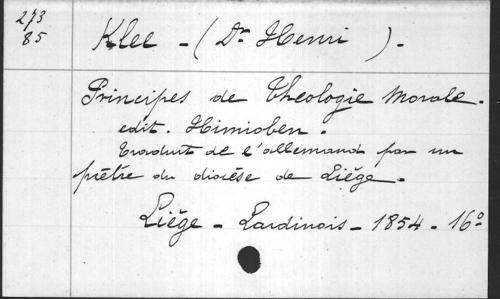 273
85
Klee - (Dr Henri ) -
Principes de Théologie Morale.
edit. Himioben.
Traduit de l'allemand par un
prêtre du diocèse de Liége.
Liége - Lardinois - 1854 - 16º